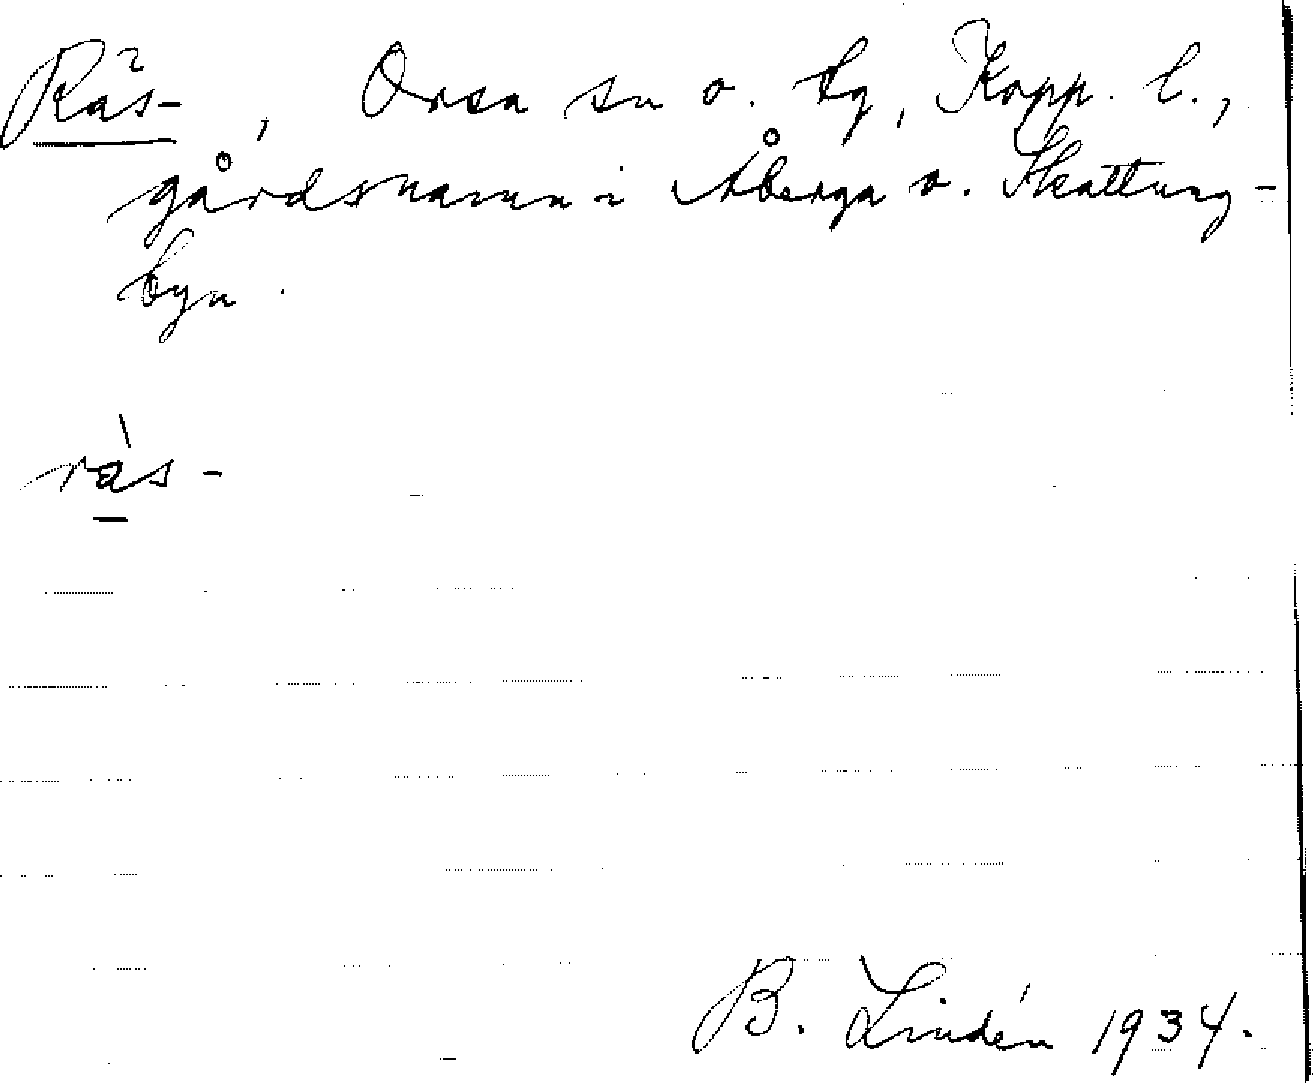 Rås-, Orsa sn o. tg, Kopp. l.,
gårdsnamn i Åberga o. Skattung-
byn.
rà̠s-
B. Lindén 1934.